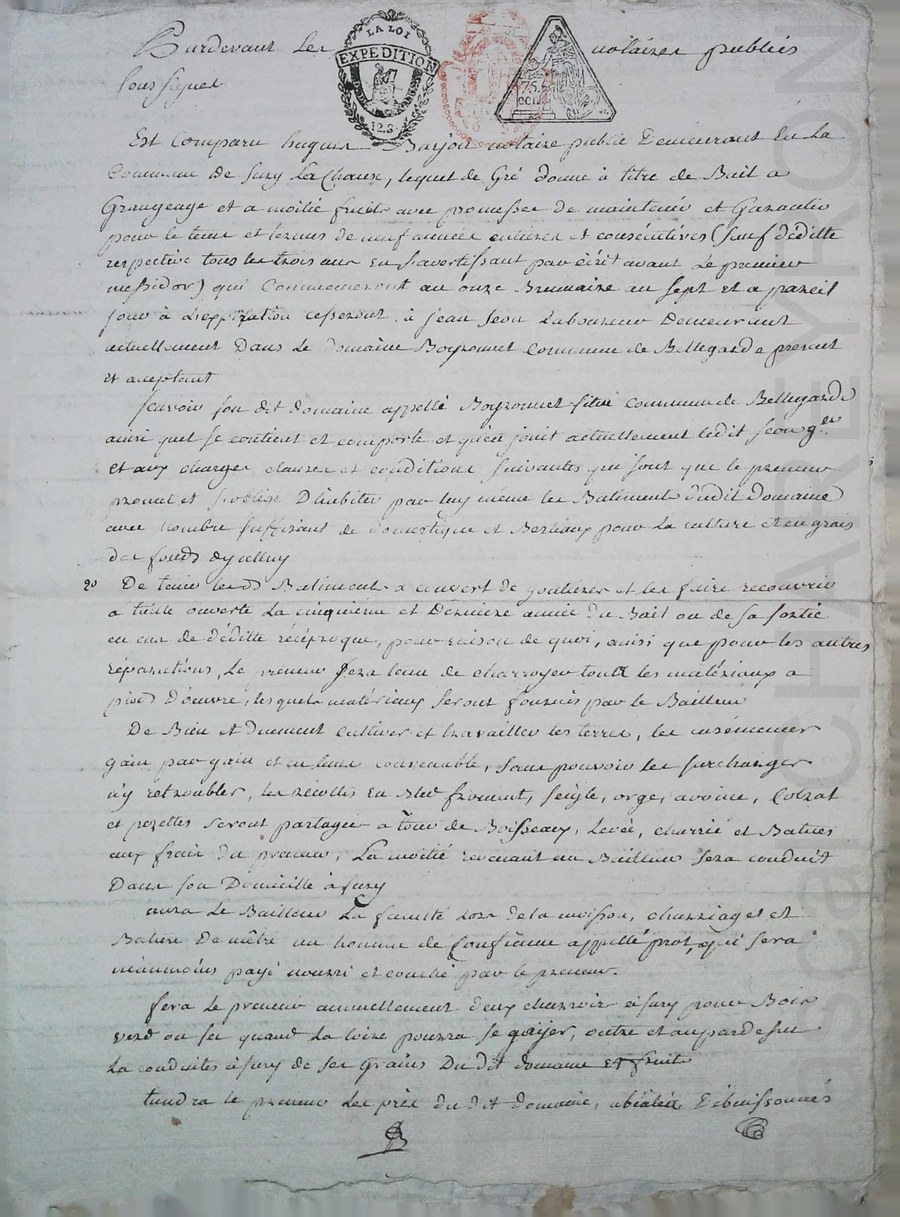 Pardevant les notaires publics
soussignés
LA LOI
EXPEDITION
12.S
75.
cent.
Est comparu hugues Barjon notaire public Demeurant En la
Commune De Sury La Chaux, lequel de Gré donne à titre de Bail a
Grangeage et a moitié fruits avec promesse de maintenir et Garantir
pour le tems et termes de neuf années entieres et consécutives (sauf déditte
respective tous les trois ans En s'avertissant par écrit avant Le premier
messidor) qui Commenceront au onze Brumaire an Sept et a pareil
jour à L'expiration cesseront, à Jean Jeon Laboureur Demeurant
actuellement Dans Le domaine Boyronnet Commune de Bellegarde present
et aceptant
Scavoir son dit domaine appellé Boyronnet situé commune de Bellegarde
ainsi quel se contient et comporte et qu'en jouit actuellement ledit Jéon g.er
et aux charges clauses et conditions suivantes qui sont que le preneur
promet et s'oblige D'habiter par luy même les Batiments dudit domaine
avec nombre suffisant de domestiques et Bestiaux pour La culture et engrais
des fonds dyceluy
2o De tenir lesd Batiments a couvert de gouttieres et les faire recouvrir
a tuille ouverte La cinquieme et Derniere année du Bail ou de sa sortie
en cas de déditte réciproque, pour raison de quoi, ainsi que pour les autres
réparations, Le preneur sera tenu de charroyer tous les matériaux a
pied D'œuvre, lesquels matériaux seront fournis par le Bailleur
De Bien et duement cultiver et travailler les terres, les ensémencer
gain par gain et en tems convenable, sans pouvoir les surcharger
n'y retroubler, les récoltes En Bled froment, seigle, orge, avoine, Colzat
et pezettes seront partagées a tour de Boisseaux, Levée, charrié et Battues
aux frais du preneur, La moitié revenant au Bailleur sera conduit
Dans son Domicille à Sury
aura Le Bailleur La faculté lors de la moisson, charriages et
Batture De mêtre un homme de Confiance appellé prot, qui sera
néanmoins payé nourri et couché par le preneur.
fera Le preneur annuellement deux charrois à Sury pour Bois
verd ou sec quand La loire pourra se gaÿer, outre et aupardessus
La conduites à Sury de ses Grains Du dit domaine et fruits
tiendra le preneur Les prés du dit domaine, abialés Ebuissonnés